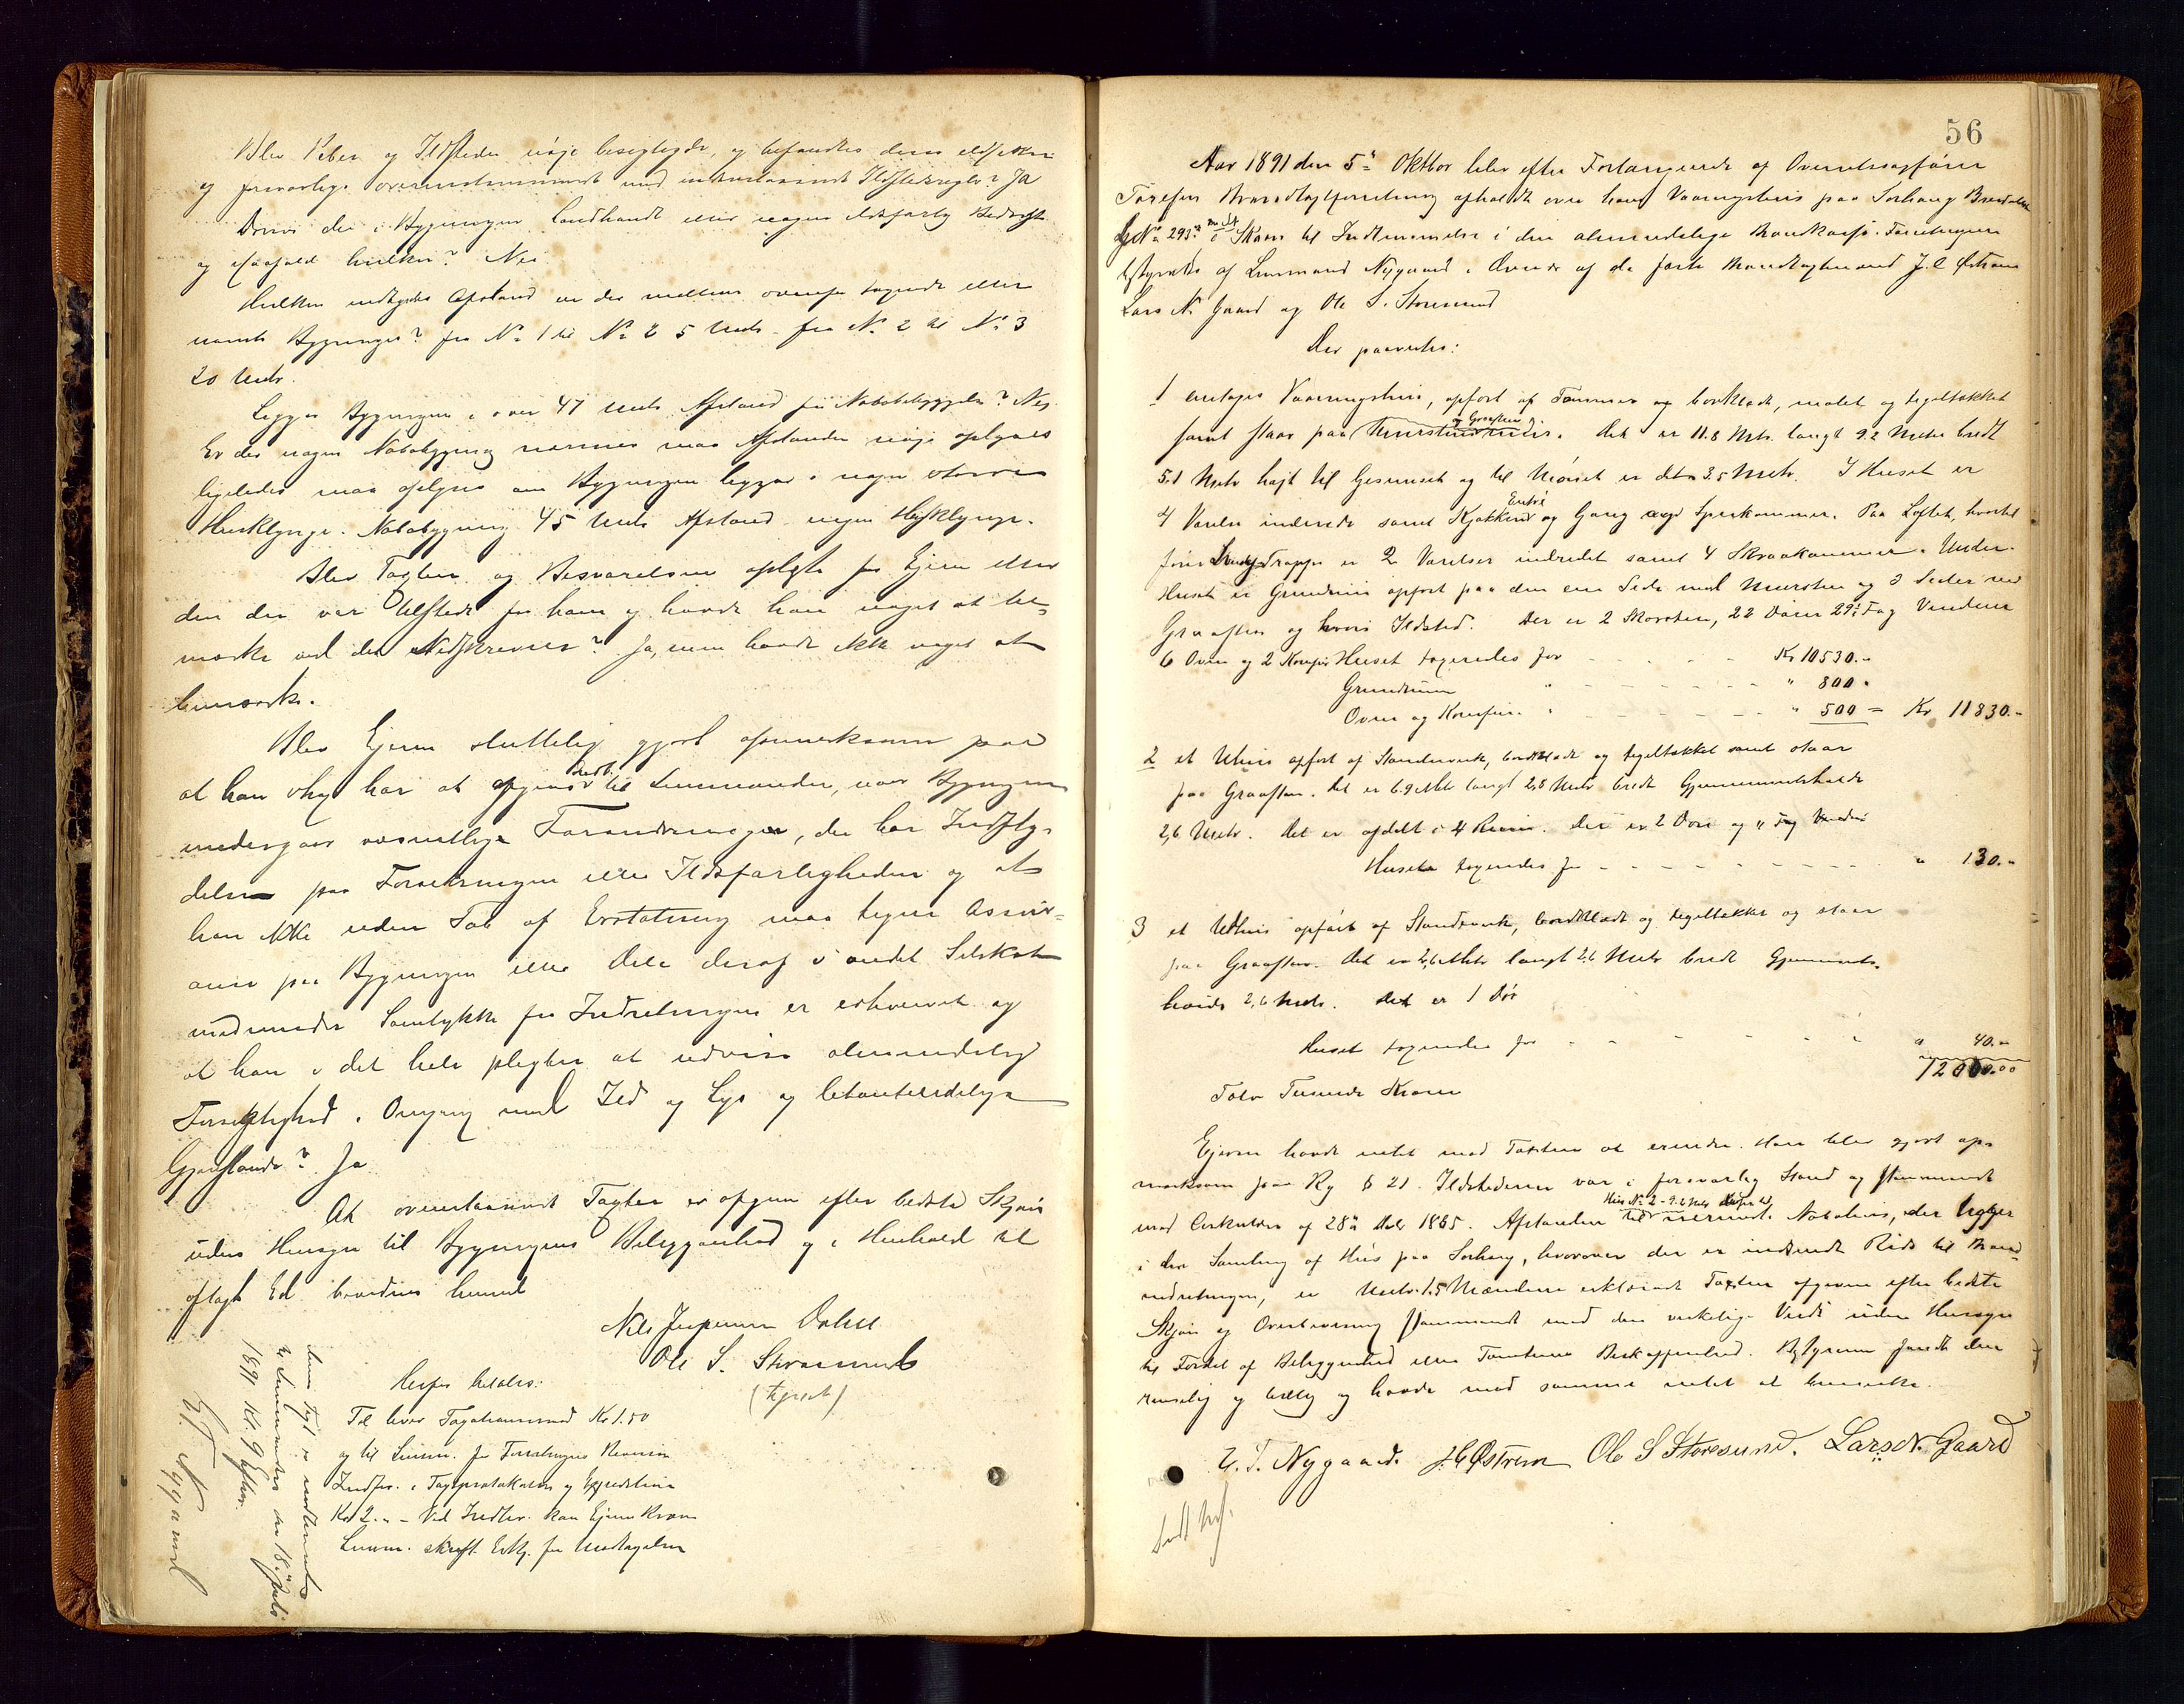 Blev Piber og Ildsteder nøje besigtigede, og befandtes disse ildsikre
og forsvarlige overensstemmende med indenlandsk Ildstedsregler? Ja
Drives der i Bygningen Landhandl eller nogen ildsfarlig Bedrift
og isaafald hvilken? Nei
Hvilken indbyrdes Afstand er der mellem ovenfor tagerede eller
nævnte Bygninger? fra No 1 til No 2 5 Metr. fra No 2 til No 3
20 Metr.
Ligger Bygningen i over 47 Metr. Afstand fra Nabobebyggelse? Nei.
Er der nogen Nabobygning nærmere maa Afstanden nøje oplyses
ligeledes maa oplyses om Bygningen ligger i nogen større
Husklynge. Nabobygning 45 Metr. Afstand ingen Husklynge.
Blev Taxten og Besvarelsen oplæst for Ejeren eller
den der var tilstede for ham og havde han noget at be-
mærke ved det Nedskrevne? Ja, men havde ikke noget at
bemærke.
Blev Ejeren sluttelig gjort opmærksom paa
at han ikke har at opgive skrftl. til Lensmanden, naar Bygningen
undergaar væsentlige Forandringer, der har Indfly-
delse paa Forsikringen eller Ildsfarligheden og at
han ikke uden Tab af Erstatning maa tegne Assur-
ance paa Bygningen eller Dele deraf i andet Selskab
medmindre Samtykke fra Indretningen er erhvervet og
at han i det hele pligter at udvise almindelig
Forsigtighed i Omgang med Ild og Lys og letantændelige
Gjenstande? Ja
At ovenstaaende Taxter er opgivne efter bedste Skjøn
uden Hensyn til Bygningens Beliggenhed og i Henhold til
aflagt Ed bevidnes herved
Nils Jespersen Dahle
Ole S. Storesund
(Egenh)
Herfor betales:
Til hver Taxationsmand Kr 1.50
og til Lensm. for Forretningens Revision
Indfør. i Taxtprotokollen og Expedition
Kr 2.-- Ved Indlev. kan Ejeren kræve
Lensm. skriftl. Erkj. for Modtagelsen
denne Taxt er indleveret
til Lensmanden den 18de Juli
1891 Kl. 9 Efterm.
E. T. Nygaard
56
Aar 1891 den 5te Oktbor blev efter Forlangende af Overretssagfører
Brandtaxtforretning afholdt over hans Vaaningshus paa Sørhaug Brandkasse
No 293 i Skaare til Indtræmmelse i den almindelige Brandkasse. Forretningen
bestyredes af Lensmand Nygaard i Overvær af de faste Brandtaxtmænd J. C Østrem
Lars N. Gaard og Ole S. Storesund
Der paavistes:
1 enetages Vaaningshus, opført af Tømmer og bordklædt, malet og tegltækket
samt staar paa og Graasten Murstensmur. Det er 11.8 Mtr. langt 9.2 Meter bredt
5.1 Metr højt til Gesimset og til Mønet er det 3.5 Metr. I Huset er
4 Værelser indredede samt Kjøkken Entré og Gang og Spisekammer. Paa Loftet, hvortil
fører Trappe er 2 Værelser indredet samt 4 Skraakammer. Under-
Huset er Grundmur opført paa den ene Side med Mursten og 3 Sider med
Graasten og hvori Ildsted. Der er 2 Skorsten, 22 Døre 29½ Fag Vinduer
6 Ovne og 2 Komfur Huset taxeredes for - - - - Kr 10530.-
Grundmuren " - - - - - " 800 "
Ovne og Komfur " - - - - " 500 = Kr 11830.-
2 et Udhus opført af Standværk, bordklædt og tegltækket samt staar
paa Graasten. Det er 6.9 Metr langt 2,8 Metr bredt Gjennemsnitshøide
2,6 Metr. Det er afdelt i 4 Rum. Der er 2 Døre og " Fag Vinduer
Huset taxeredes for - - - - - - - - " 130.-
3 et Udhus opført af Standværk, bordklædt og tegltækket og staar
paa Graasten. Det er 2,6 Metr langt 2,6 Metr bredt Gjennemsnits-
høide 2,6 Metr. Det er 1 Dør
Huset taxeredes for - - - - - " 40.-
12000.00
Tolv Tusinde Kroner
Ejeren havde intet mod Taxten at erindre. Han blev gjort op-
mærksom paa Rg § 21. Ildstederne var i forsvarlig Stand og stemmende
med Cirkulære af 28de Dcbr 1885. Afstanden til Hus No 2 - 9.2 Mtr nærmeste Nabohus, der ligger
i den Samling af Hus paa Sørhaug, hvorover der er indsendt Rids til Brand-
indretningen, er Metr. 1.5 Mændene erklærede Taxten opgiven efter bedste
Skjøn og Overbevisning stemmende med den virkelige Værdi uden Hensyn
til Fordel af Beliggenhed eller Tomtens Beskaffenhed. Bestyreren fandt den
rimelig og billig og havde mod samme intet at bemærke.
E. T. Nygaard. J. C Østrem Ole S Storesund. Lars N. Gaard